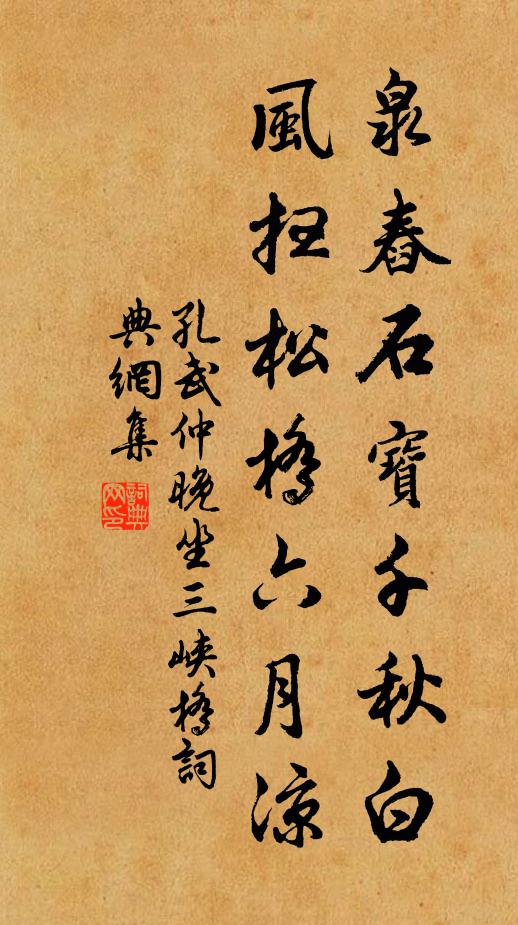 泉舂石寶千秋白
風扫松橋六月涼
孔武仲晚坐三峽橋詞
典網集
詞典
网印